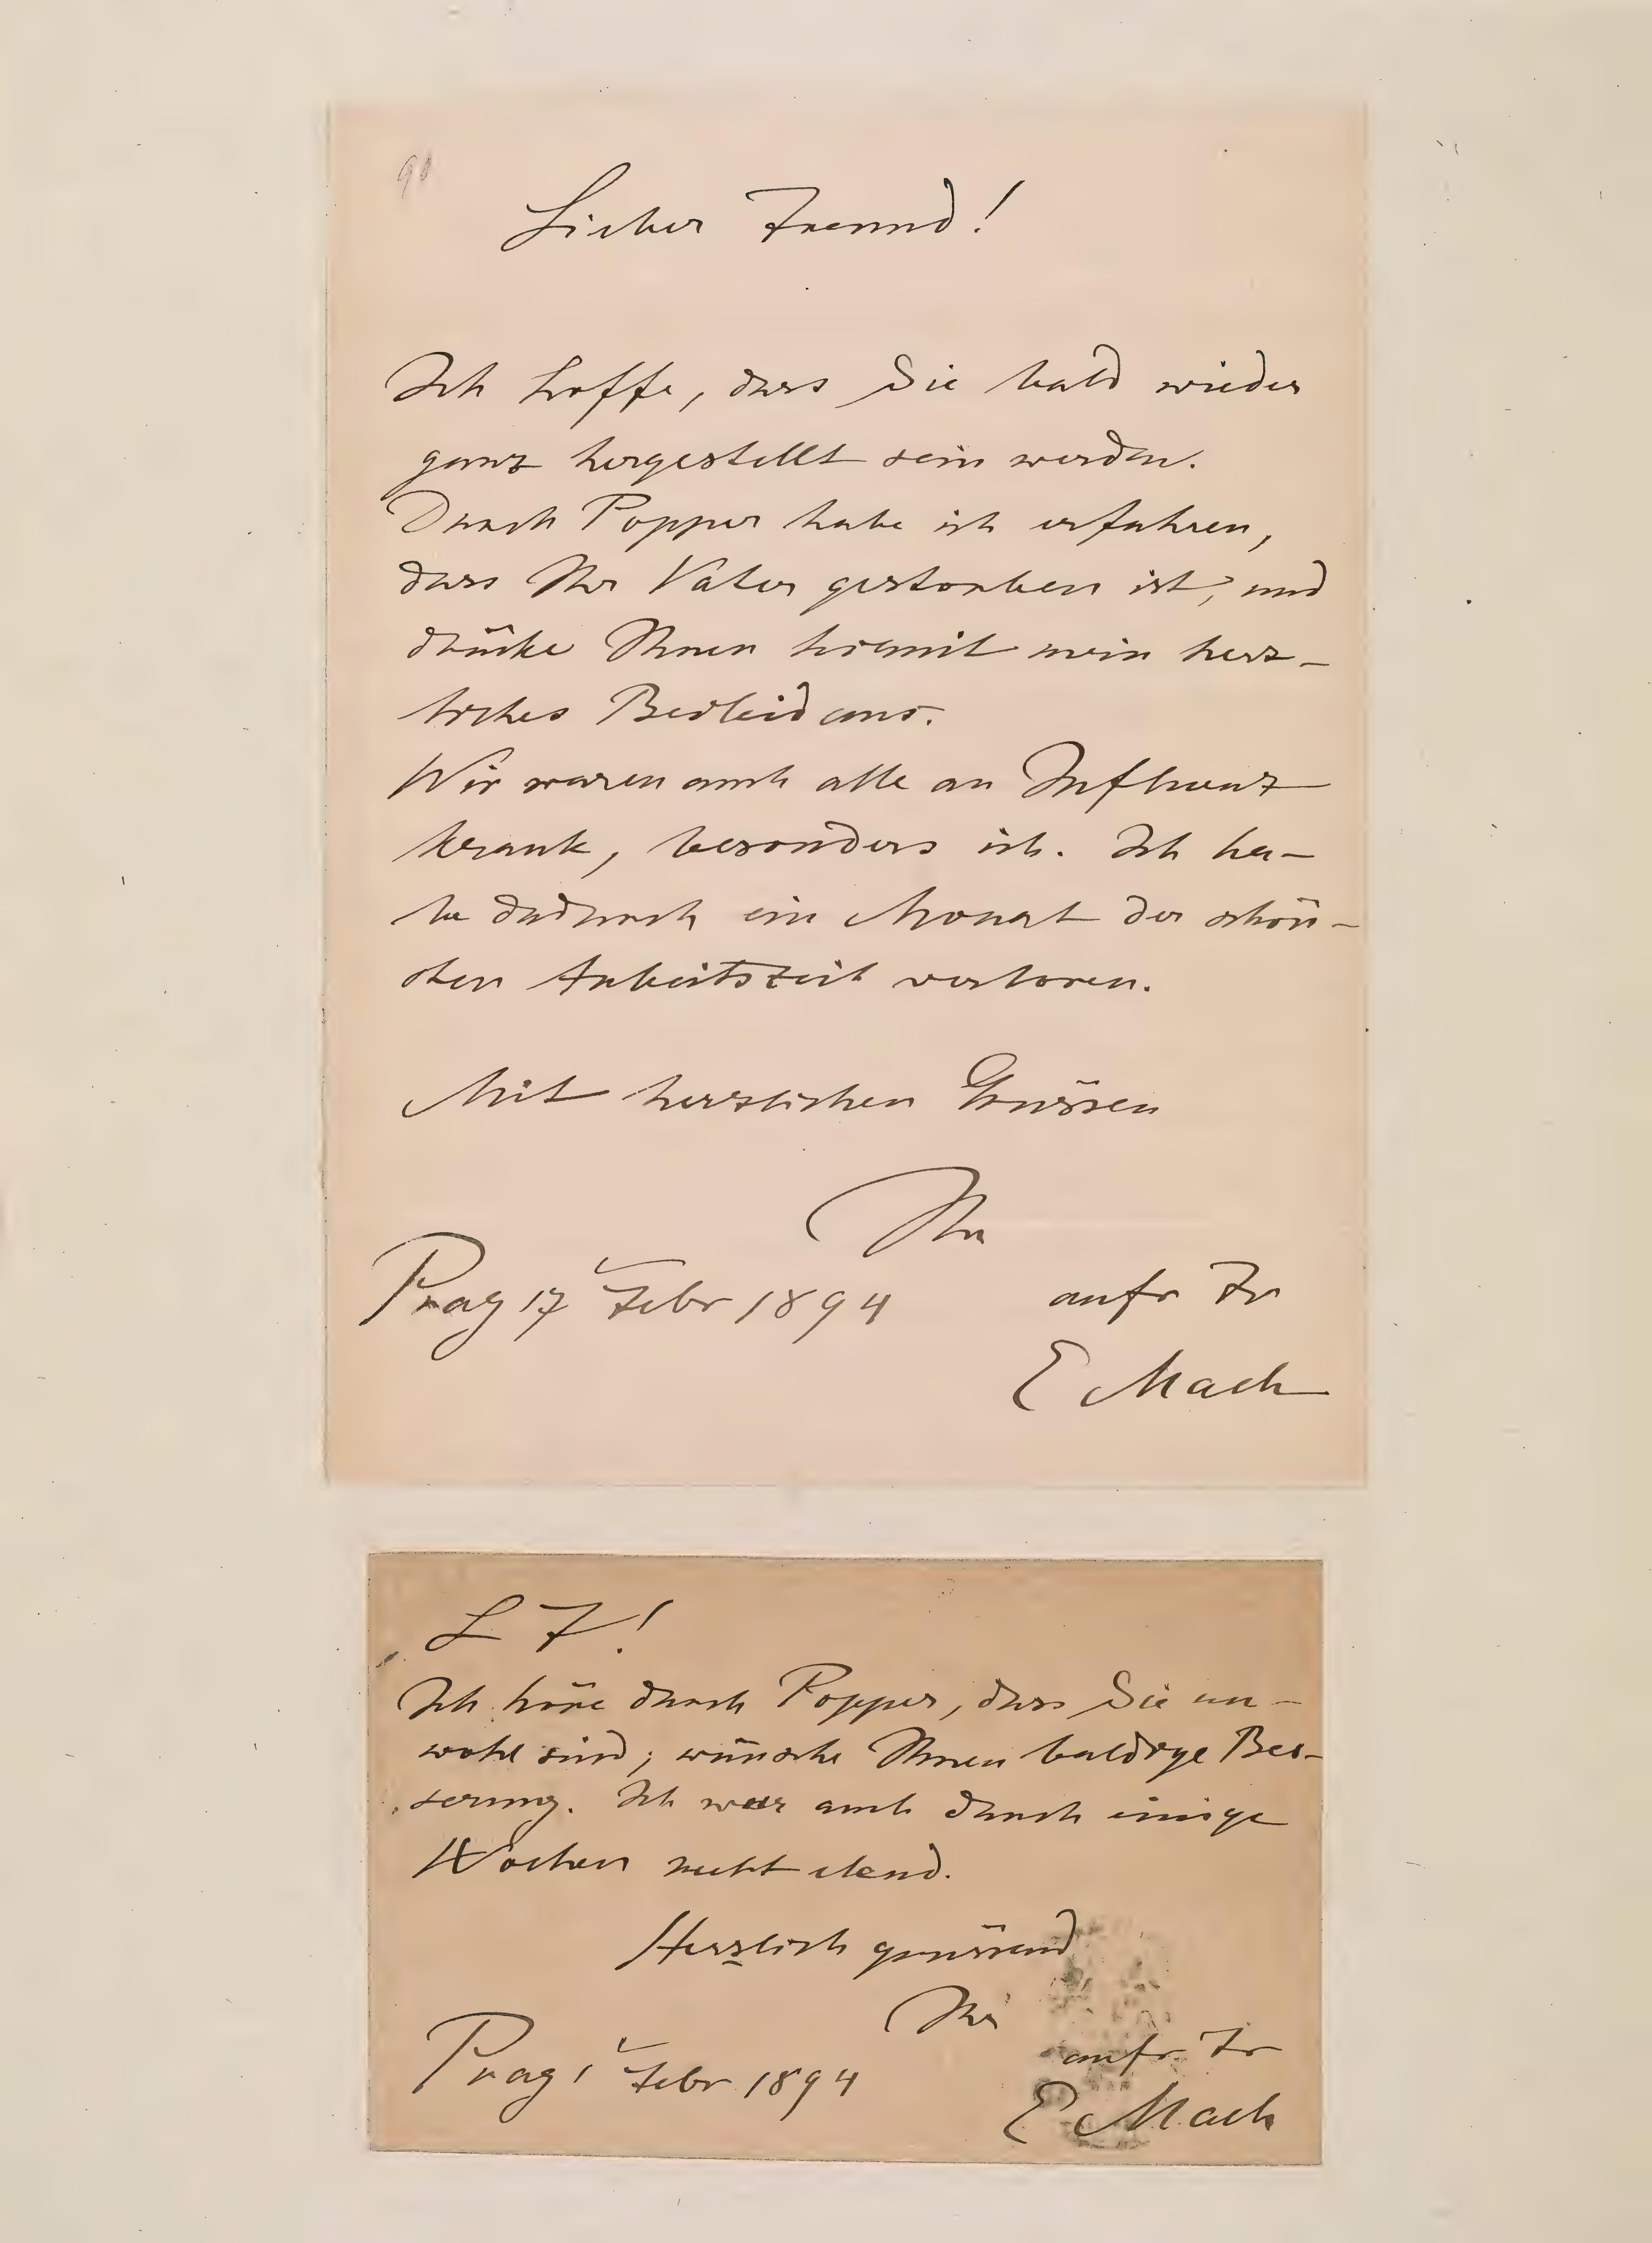 90
Lieber Freund!
Ich hoffe, dass Sie bald wieder
ganz hergestellt sein werden.
Durch Popper habe ich erfahren,
dass Ihr Vater gestorben ist, und
drücke Ihnen hiemit mein herz-
liches Beileid aus.
Wir waren auch alle an Influenz
krank, besonders ich. Ich ha-
be dadurch ein Monat der schön-
sten Arbeitszeit verloren.
Mit herzlichen Grüssen
Ihr
Prag 17 Febr 1894
aufr Fr
E Mach
L F!
Ich höre durch Popper, dass Sie un-
wohl sind; wünsche Ihnen baldige Bes-
serung. Ich war auch durch einige
Wochen recht elend.
Herzlich grüssend
Ihr
Prag 1 Febr 1894
aufr Fr
E Mach